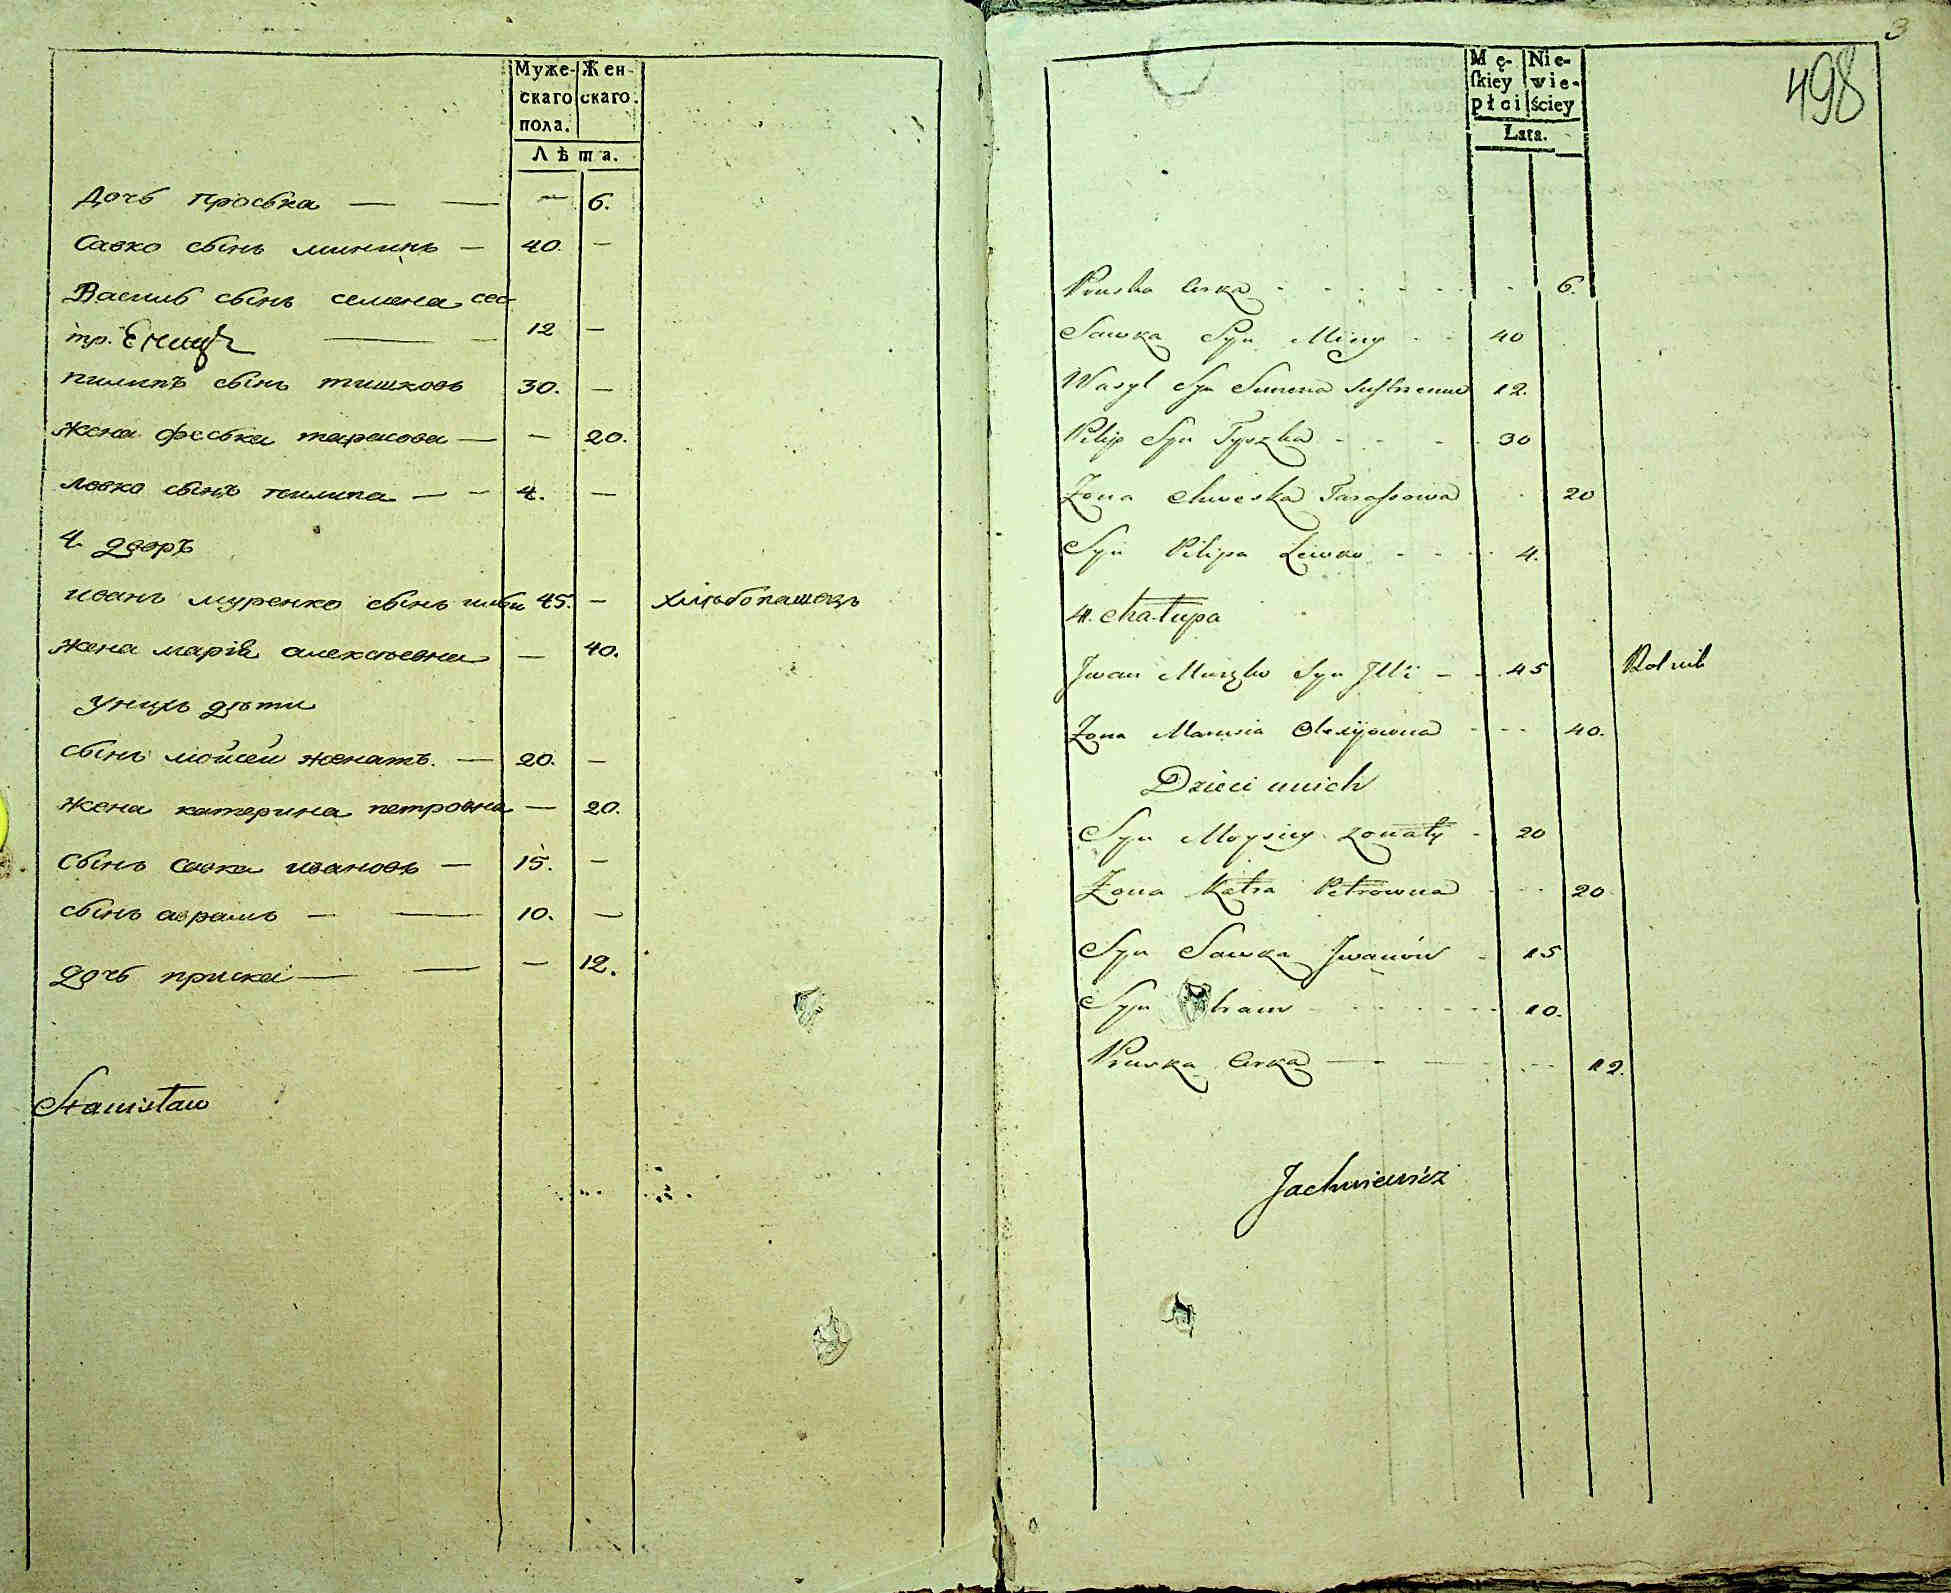 Муже-
скаго
пола.
Жен-
скаго.
Лѣта.
Дочь проська — — — 6.
Савко сынъ мининъ — 40. —
Василь сынъ семена сес-
тр. 12 —
пилипъ сынъ тишковъ 30. —
жена феська тарасова — — 20.
левко сынъ пилипа — — 4. —
4. дворъ
иванъ муренко сынъ 45. — хлѣбопашецъ
жена марія алексѣевна — 40.
у нихъ дѣти
сынъ мойсей женатъ. — 20. —
жена катерина петровна — 20.
сынъ савка ивановъ — 15. —
сынъ аврамъ — — 10. —
дочь приска — — — 12.
Stanisław
3
498
Mę-
ſkiey
płci
Nie-
wie-
ściey
Lata.
Pruska Curka 6.
Sawka Syn Miny 40
Wasyl Syn Semena 12.
Pilip Syn Tyszka 30
Zona Chweska Tarasowa 20
Syn Pilipa Lewko 4.
4. Chałupa
Jwan Murzko Syn Jlli 45 Rolnik
Zona Marusia Olexijowna 40.
Dzieci unich
Syn Moysiey zonaty 20
Zona Katra Petrowna 20
Syn Sawka Jwanów 15
Syn bram 10.
Pruska Curka 12.
Jachniewicz